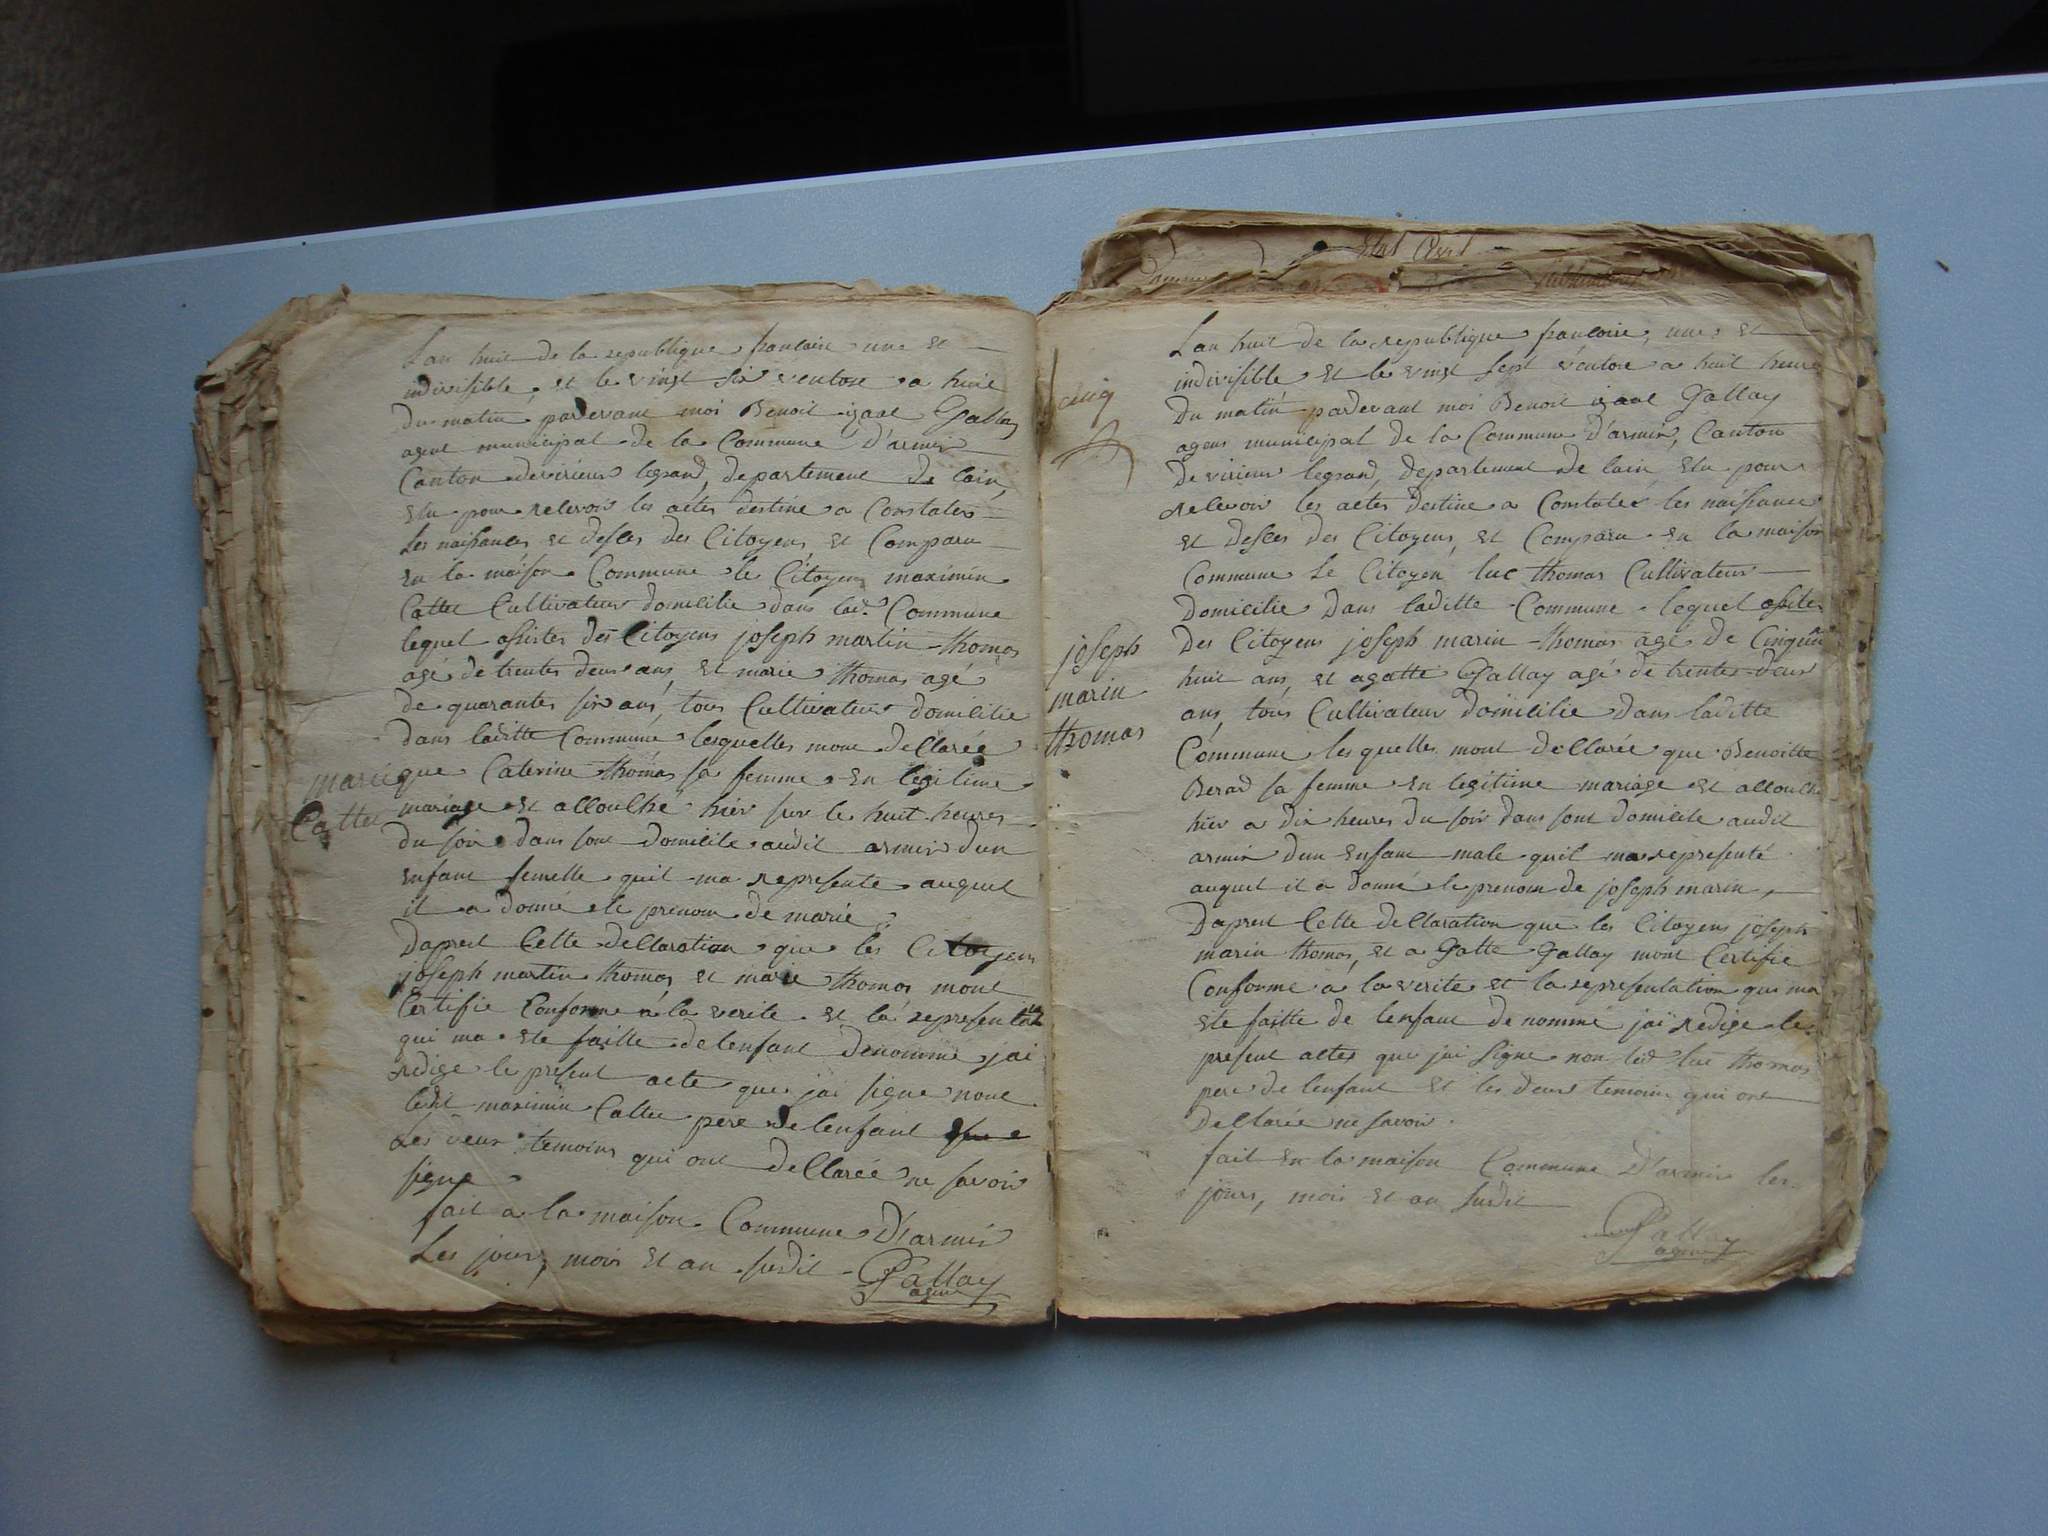 Lan huit de la republique francaise une et
indivisible, et le vingt six ventose a huit
du matin pardevant moi Benoit izaac Gallay
agent municipal de la Commune d'armix
Canton de virieux legrand, departement de lain,
elu pour relevoir les actes destiné a Constater
les naissances et desces des Citoyens, et Comparu
en la maison Commune le Citoyen maximin
Cattu Cultivateur domicilie dans lad. Commune
lequel assistes des Citoyens joseph martin thomas
agé de trentes deux ans, et marie thomas agé
de quarantes six ans, tous Cultivateur domicilie
dans laditte Commune lesquelles mont declarée
marie
que Caterine thomas sa femme en legitime
Cattu
mariage et allouche hier sur le huit heures
du soir dans sont domicile audit armix dun
enfant femelle quil ma represente auquel
il a donné le prenom de marie
Dapret Cette declaration que les Citoyens
joseph martin thomas et marie thomas mont
Certifie Conforme a la verite et la representation
qui ma ete faitte de lenfant denommé jai
redige le present acte que jai signe nont
ledit maximin Cattu pere de lenfant
les deux temoins qui ont declarée ne savoir
signe
fait a la maison Commune D'armix
Les jours, mois et an susdit Gallay
agent
Etat Civil
cinq
Lan huit de la republique francaise, une et
indivisible et le vingt sept ventose a huit heure
du matin pardevant moi Benoit izaac Gallay
agent municipal de la Commune d'armix, Canton
de virieux legrand, departement de lain elu pour
relevoir les actes destine a Constater les naissance
et desces des Citoyens, et Comparu en la maison
Commune le Citoyen luc thomas Cultivateur
domicilie dans laditte Commune lequel assites
joseph
marin
thomas
des Citoyens joseph marin thomas age de Cinquante
huit ans, et agatte Gallay agé de trentes deux
ans, tous Cultivateur domicilie dans laditte
Commune lesquelles mont declarée que Benoitte
Berard sa femme en legitime mariage et allouche
hier a dix heures du soir dans sont domicile audit
armix dun enfant male quil ma representé
auquel il a donné le prenom de joseph marin,
Dapret Cette declaration que les Citoyens joseph
marin thomas, et a Gatte Gallay mont Certifie
Conforme a la verite et la representation qui ma
ete faitte de lenfant denommé jai redige le
present actes que jai signe non led luc thomas
pere de lenfant et les deux temoins qui ont
declarée ne savoir.
fait en la maison Commune D'armix les
jours, mois et an susdit
Gallay
agent